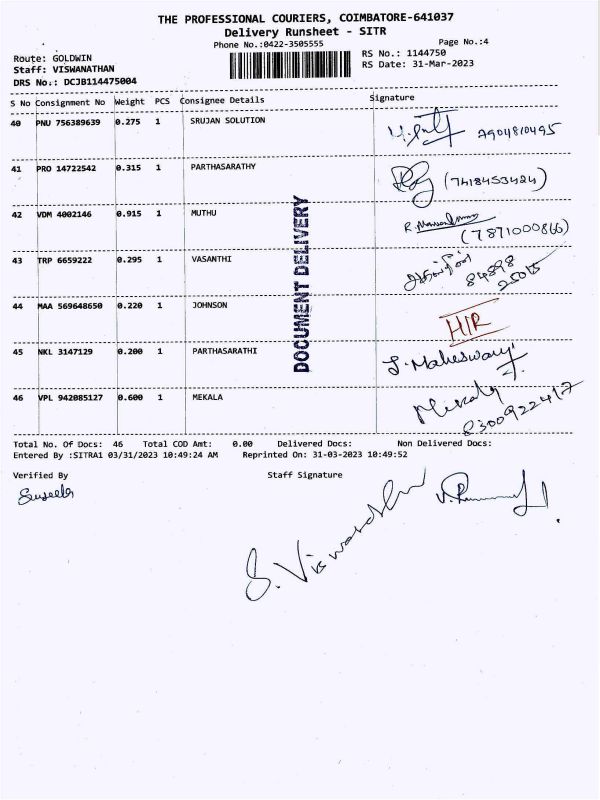 THE PROFESSIONAL COURIERS, COIMBATORE-641037
Delivery Runsheet - SITR
Phone No.:0422-3505555 Page No.:4
Route: GOLDWIN RS No.: 1144750
Staff: VISWANATHAN RS Date: 31-Mar-2023
DRS No.: DCJB114475004
S No Consignment No Weight PCS Consignee Details Signature
40 PNU 756389639 0.275 1 SRUJAN SOLUTION 7904810495
41 PRO 14722542 0.315 1 PARTHASARATHY (7418453424)
42 VDM 4002146 0.915 1 MUTHU (7871000866)
43 TRP 6659222 0.295 1 VASANTHI 84898 25015
44 MAA 569648650 0.220 1 JOHNSON H/R
45 NKL 3147129 0.200 1 PARTHASARATHI J. Maheswary
46 VPL 942085127 0.600 1 MEKALA Mekala 8300922417
DOCUMENT DELIVERY
Total No. Of Docs: 46 Total COD Amt: 0.00 Delivered Docs: Non Delivered Docs:
Entered By :SITRA1 03/31/2023 10:49:24 AM Reprinted On: 31-03-2023 10:49:52
Verified By Staff Signature
Suseela
S. Viswanathan